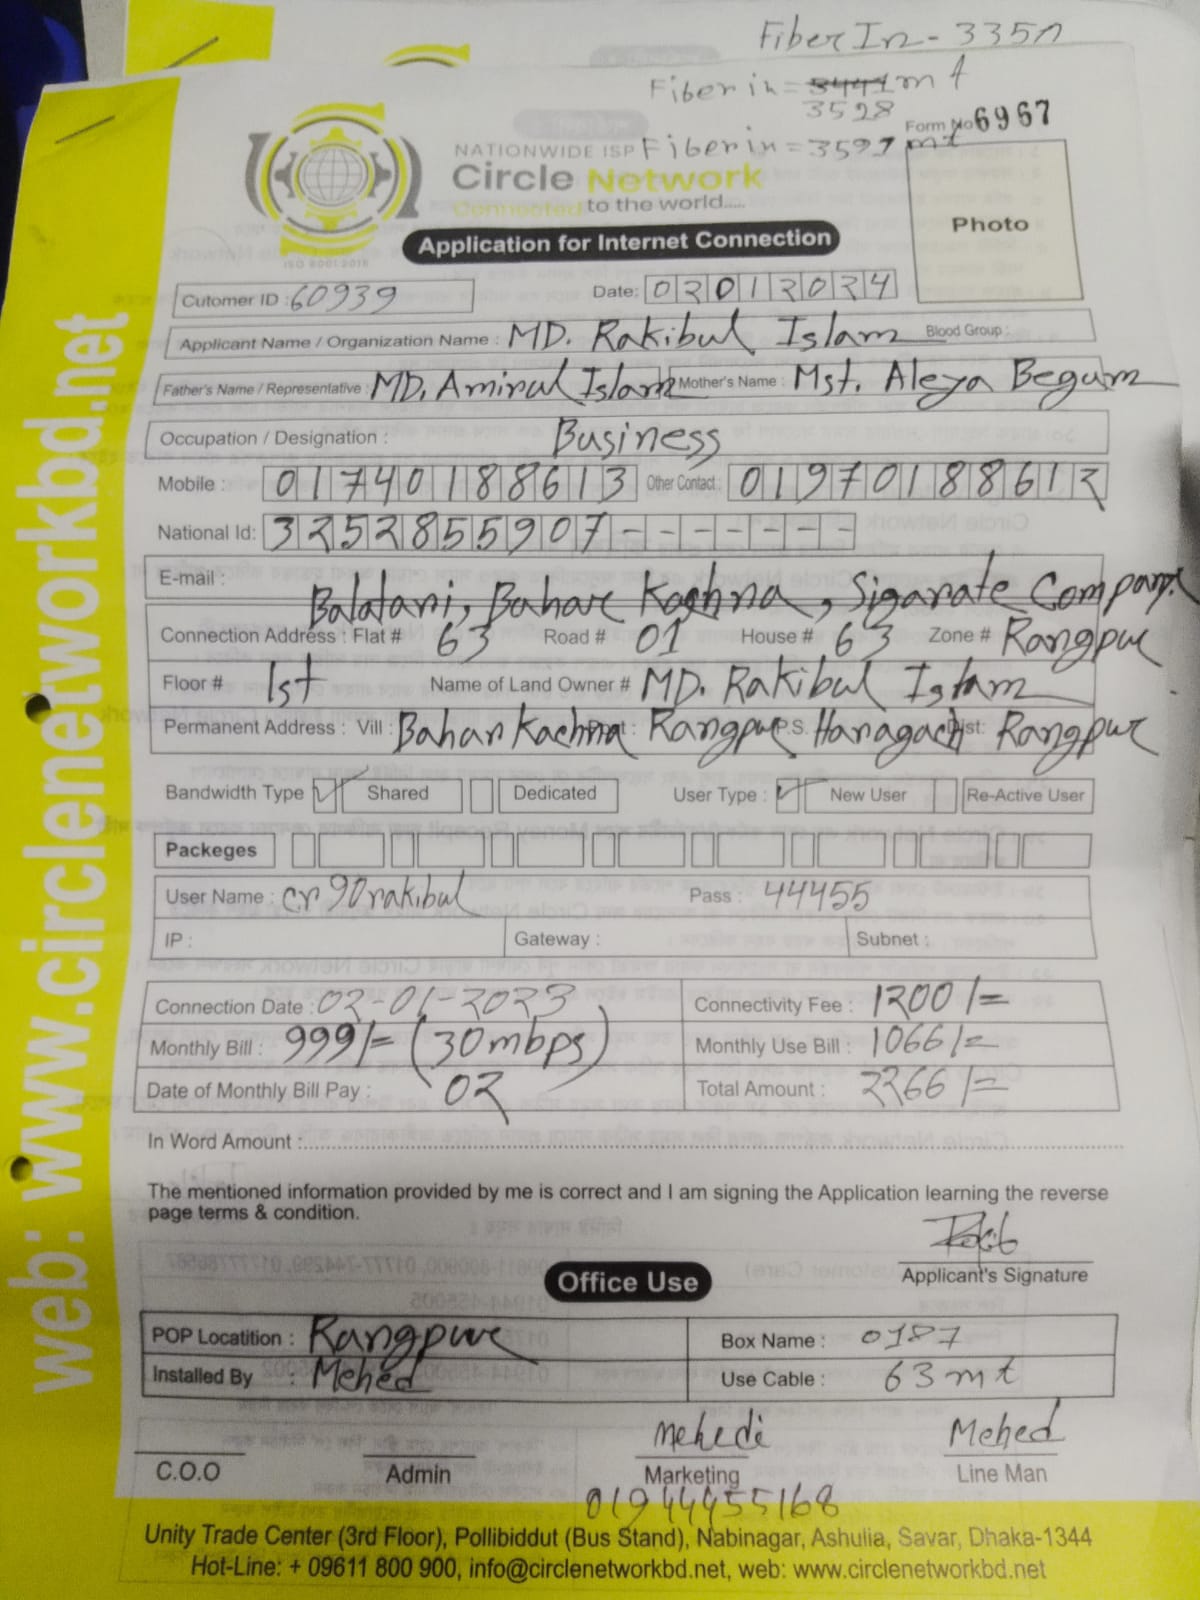 Fiber In - 335
Fiber in = mt
3528
Form No 6967
NATIONWIDE ISP Fiber in = 3597 mt
Circle Network
Connected to the world.....
ISO 9001:2015
Photo
Application for Internet Connection
Cutomer ID : 60939 Date: 02012024
Applicant Name / Organization Name : MD. Rakibul Islam Blood Group :
Father's Name / Representative : MD. Amirul Islam Mother's Name : Mst. Aleya Begum
Occupation / Designation : Business
Mobile : 01740188613 Other Contact : 01970188612
National Id: 3252855907-------
E-mail :
Balatari, Bahar Kachna, Sigarate Company
Connection Address : Flat # 63 Road # 01 House # 63 Zone # Rangpur
Floor # 1st Name of Land Owner # MD. Rakibul Islam
Permanent Address : Vill : Bahar Kachna Post : Rangpur P.S. Haragach Dist: Rangpur
Bandwidth Type Shared Dedicated User Type : New User Re-Active User
Packeges
User Name : cr90rakibul Pass : 44455
IP : Gateway : Subnet :
Connection Date : 02-01-2023 Connectivity Fee : 1200/=
Monthly Bill : 999/= (30mbps) Monthly Use Bill : 1066/=
Date of Monthly Bill Pay : 02 Total Amount : 2266/=
In Word Amount :
The mentioned information provided by me is correct and I am signing the Application learning the reverse
page terms & condition.
Rakib
Applicant's Signature
Office Use
POP Locatition : Rangpur Box Name : 0187
Installed By : Mehed Use Cable : 63 mt
mehedi Mehed
C.O.O Admin Marketing Line Man
01944455168
Unity Trade Center (3rd Floor), Pollibiddut (Bus Stand), Nabinagar, Ashulia, Savar, Dhaka-1344
Hot-Line: + 09611 800 900, info@circlenetworkbd.net, web: www.circlenetworkbd.net
web: www.circlenetworkbd.net